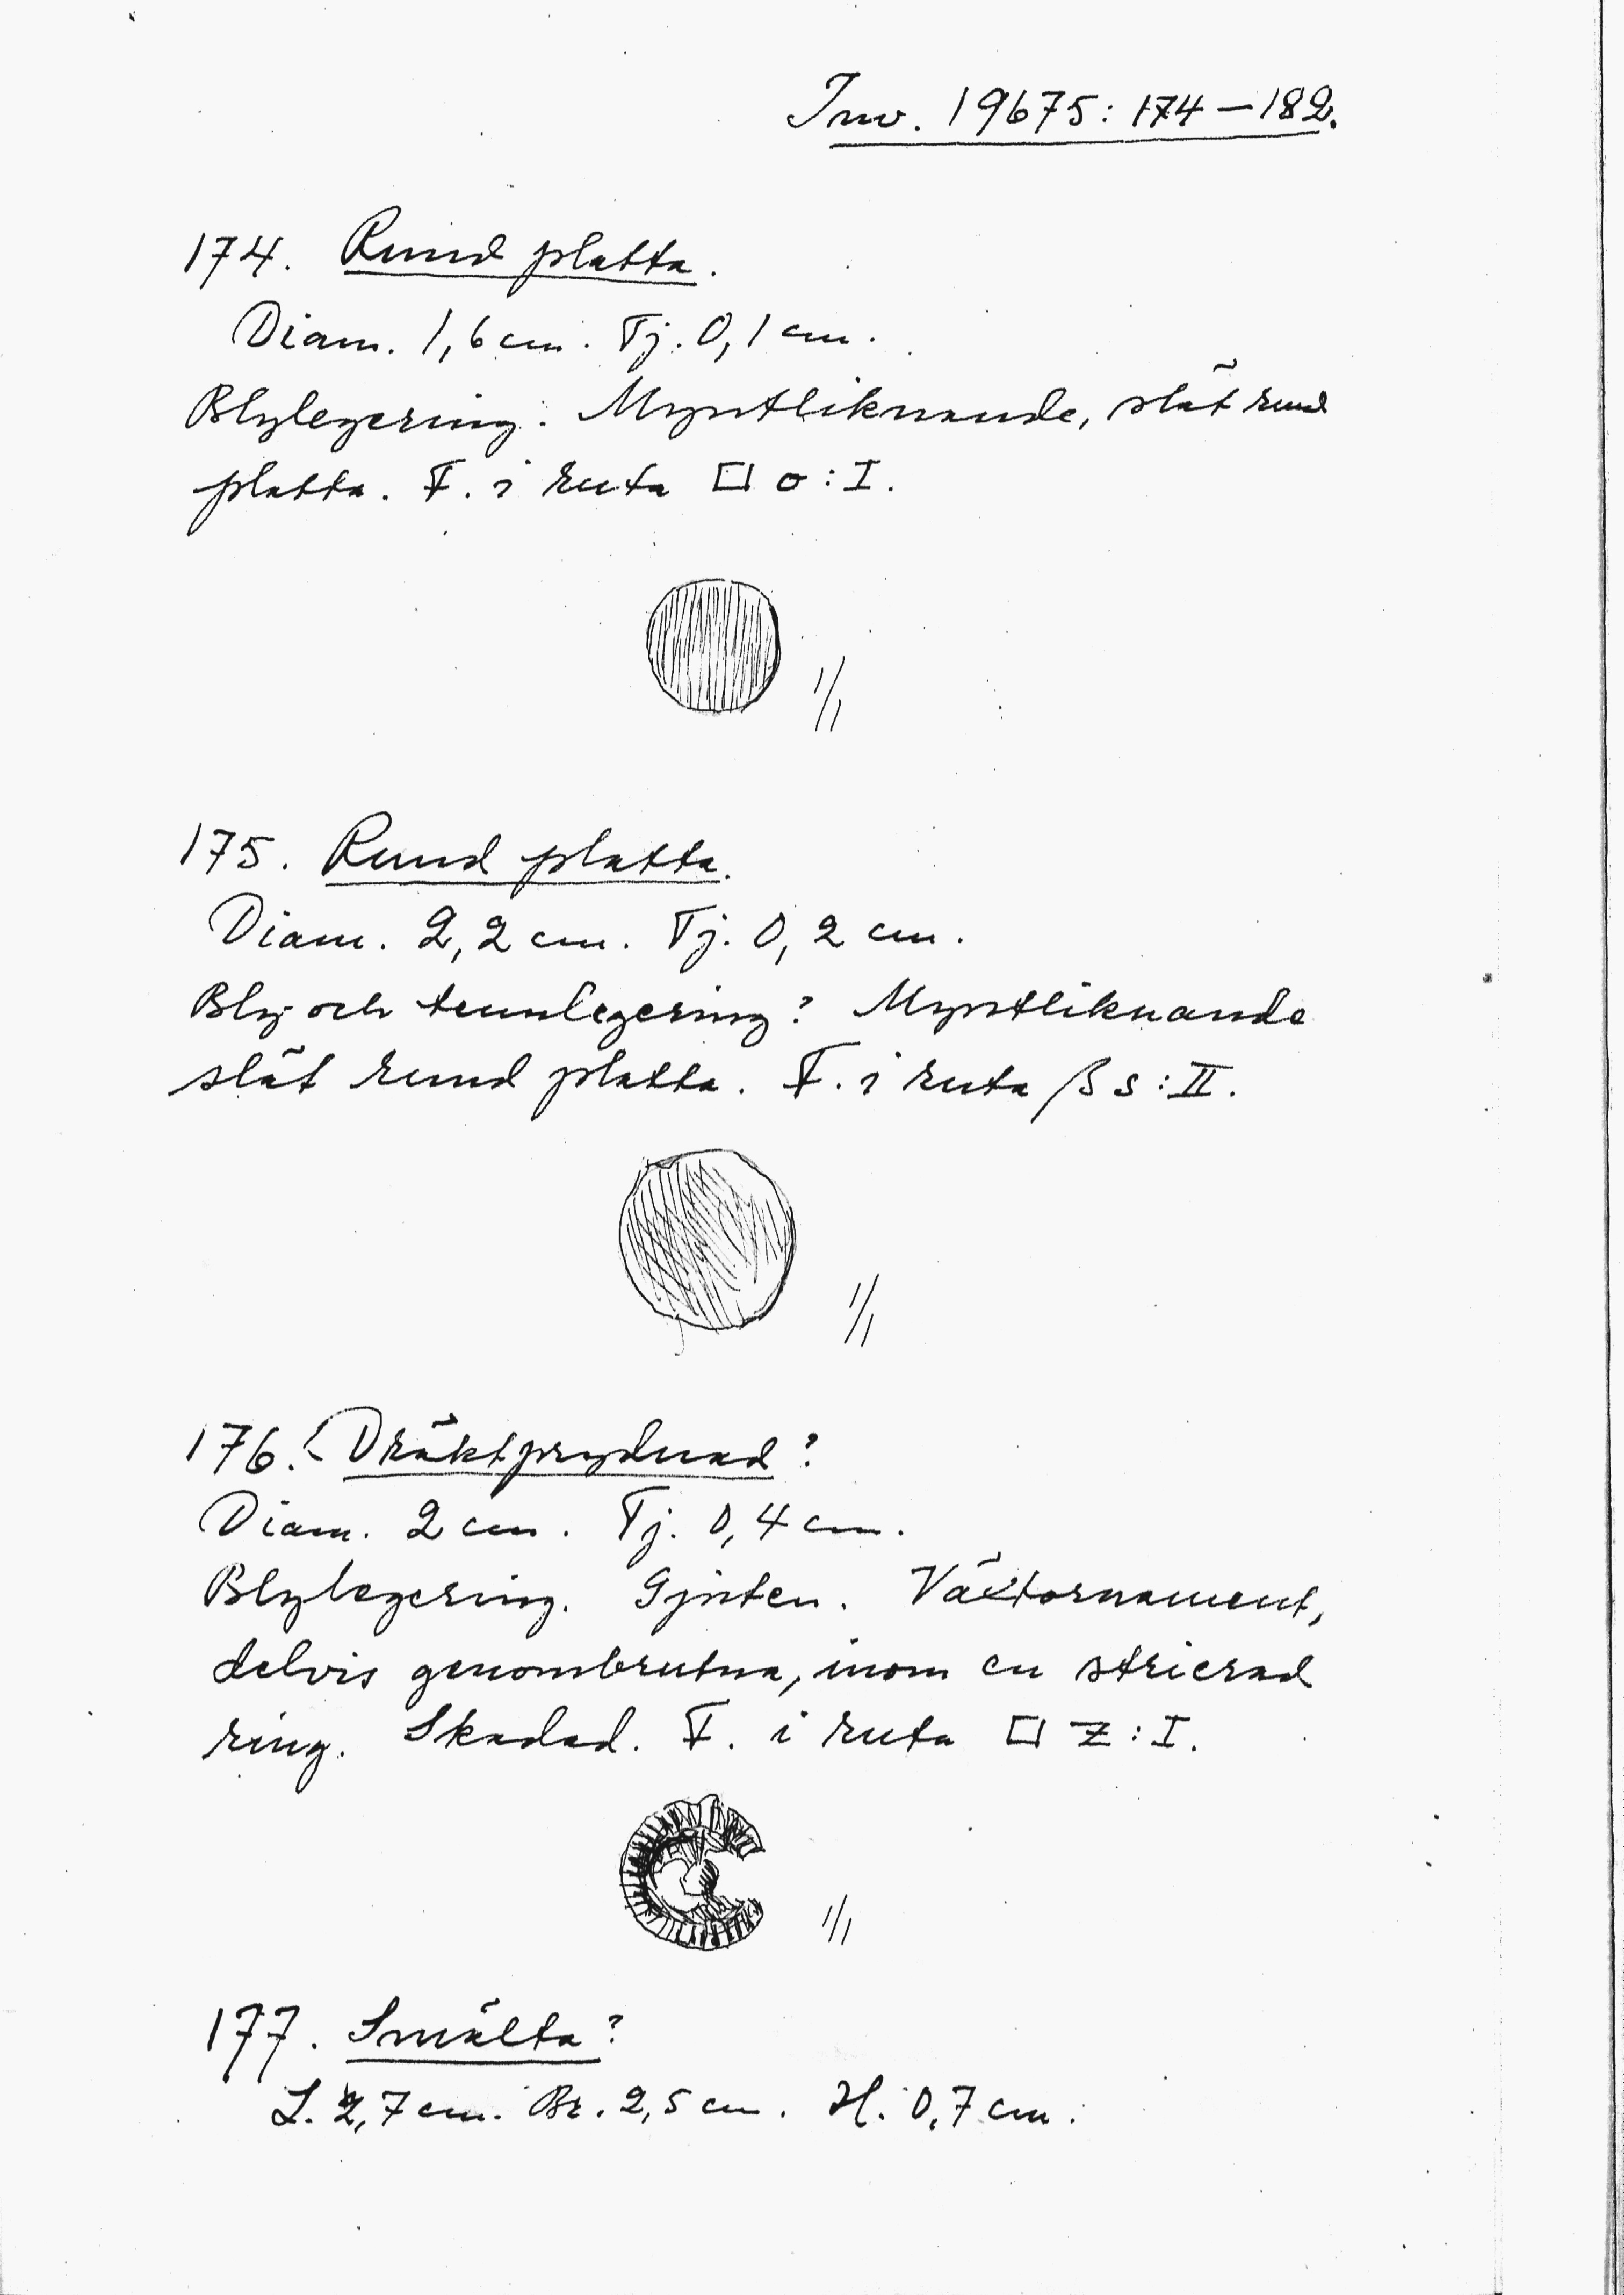 Inv. 19675: 174–182.
174. Rund platta.
Diam. 1,6 cm. Tj. 0,1 cm.
Blylegering. Myntliknande, slät rund
platta. F. i ruta □ o : I.
1/1
175. Rund platta.
Diam. 2,2 cm. Tj. 0,2 cm.
Bly och tennlegering? Myntliknande
slät rund platta. F. i ruta β s : II.
1/1
176. Dräktprydnad?
Diam. 2 cm. Tj. 0,4 cm.
Blylegering. Gjuten. Växtornament,
delvis genombrutna, inom en strierad
ring. Skadad. F. i ruta □ z : I.
1/1
177. Smälta?
L. 2,7 cm. Br. 2,5 cm. H. 0,7 cm.